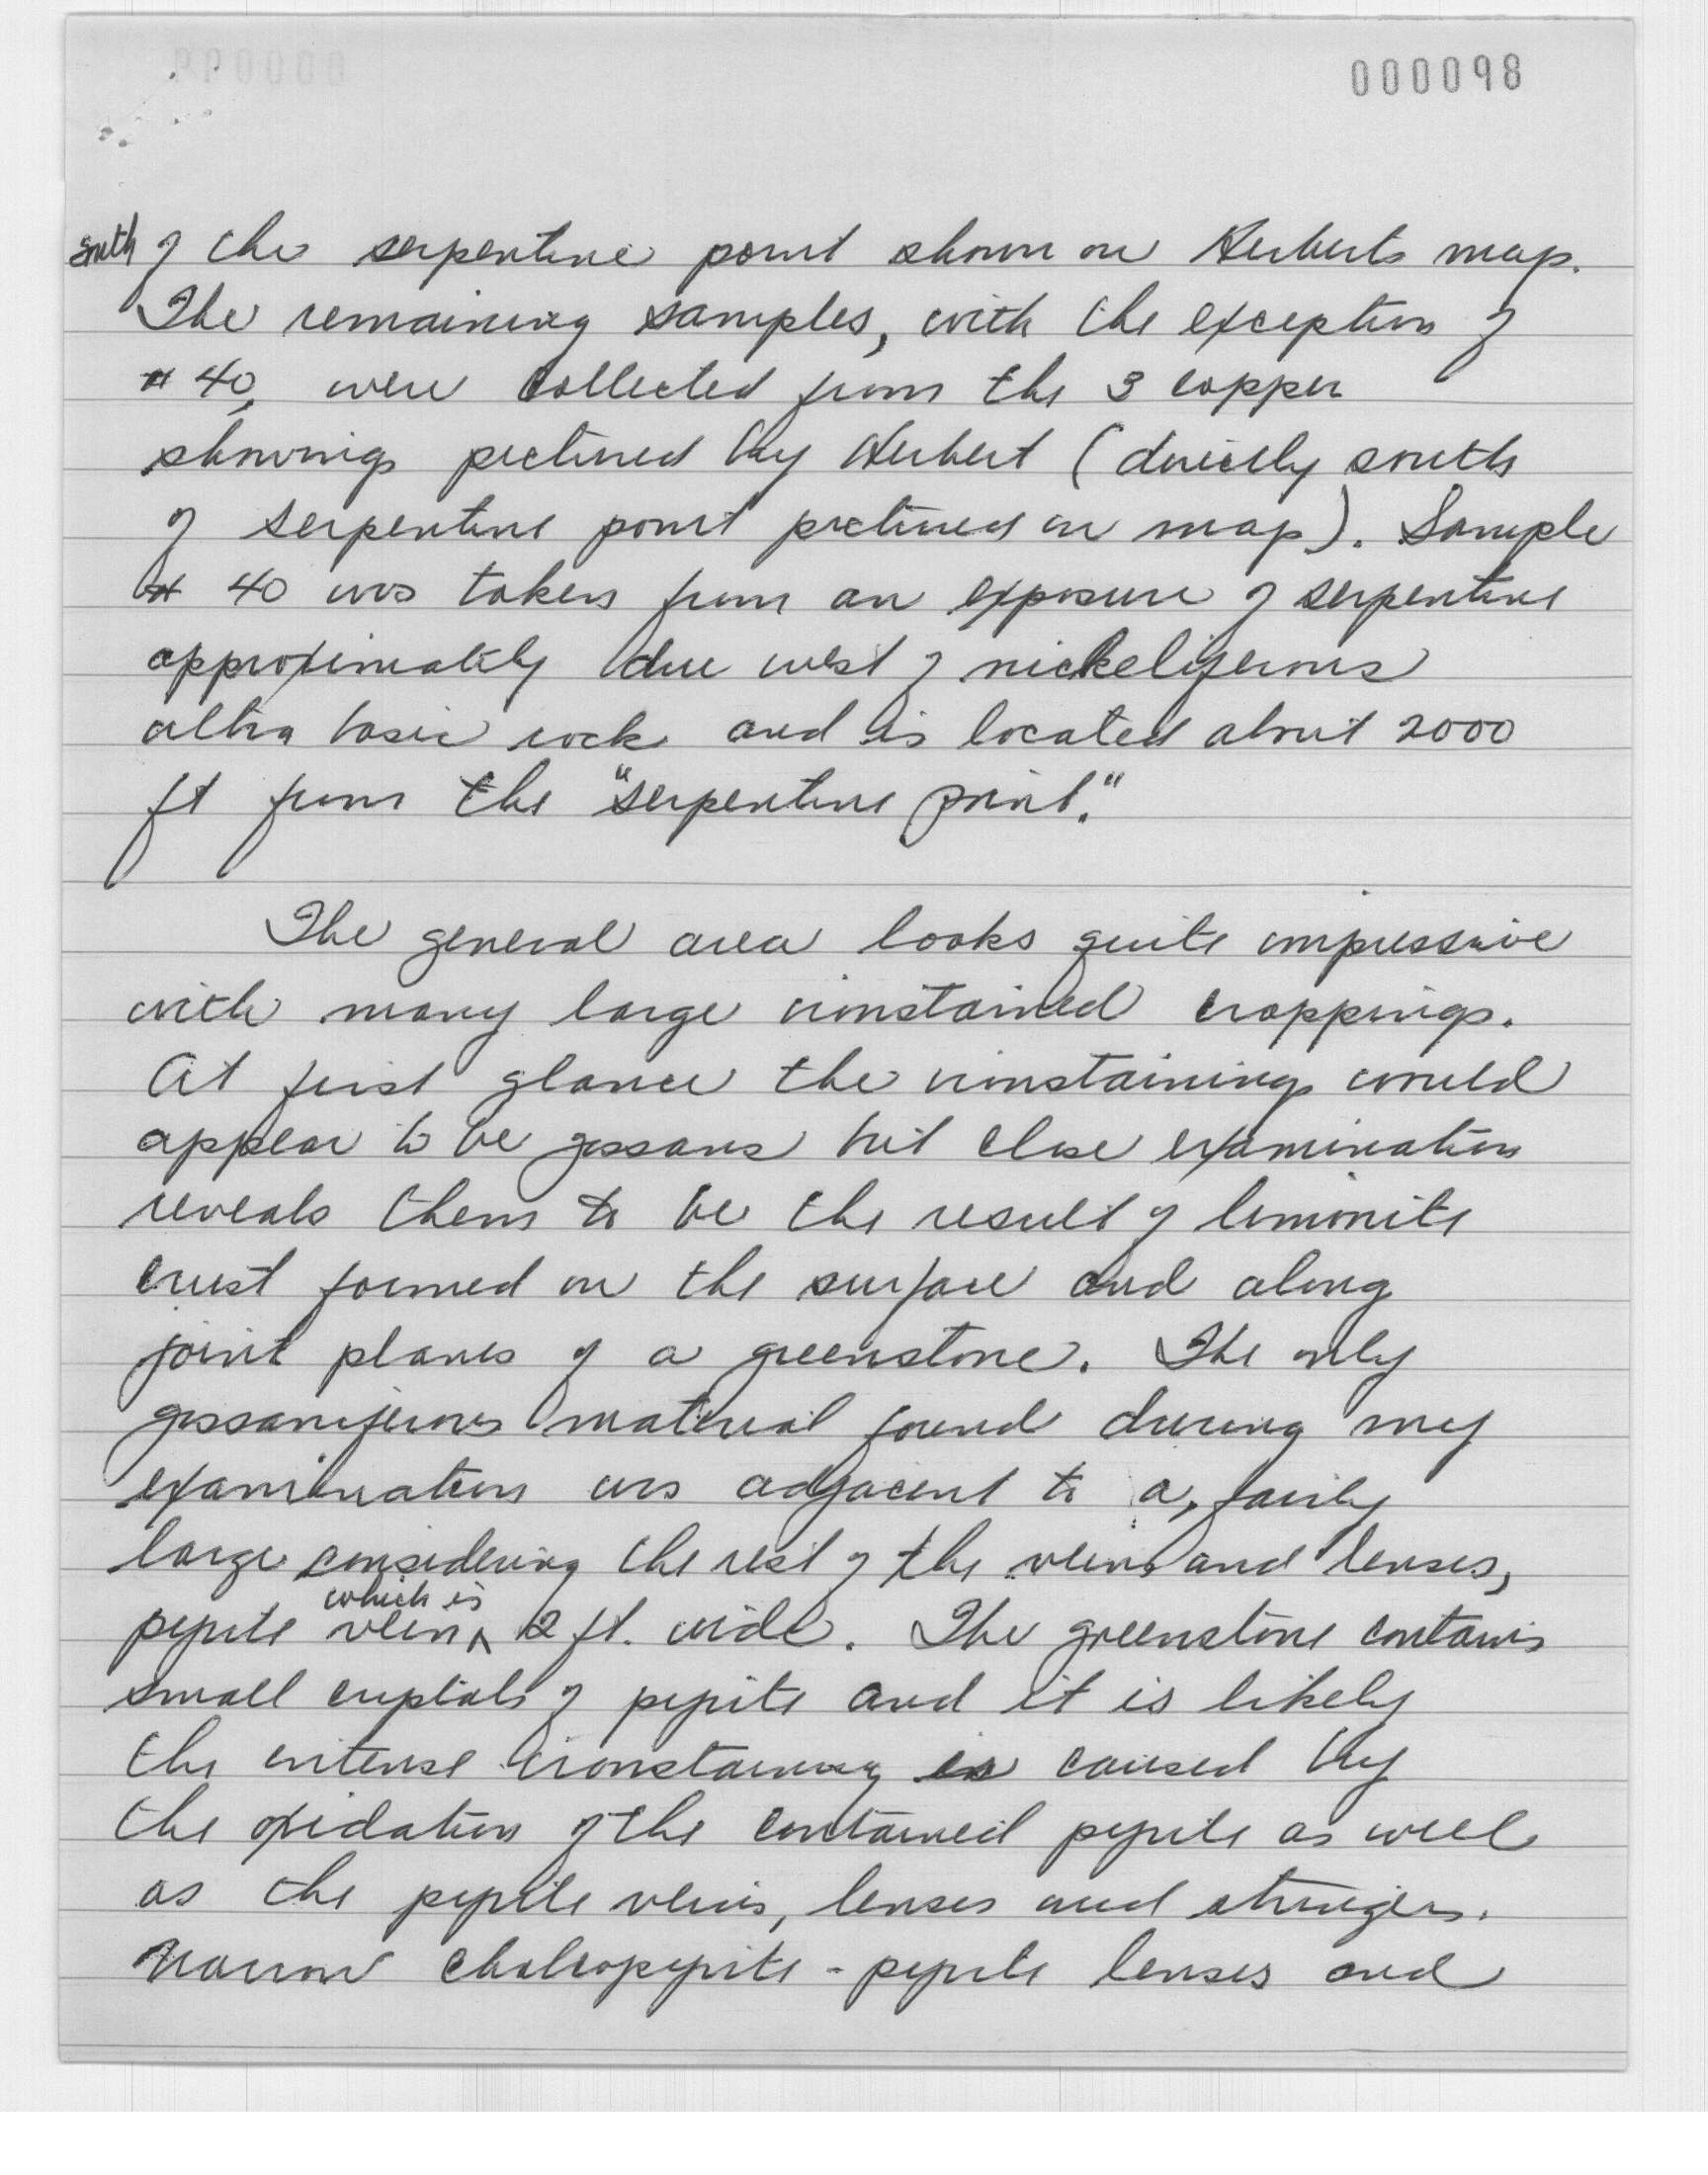 000098
south of the serpentine point shown on Herberts map.
The remaining samples, with the exception of
# 40, were collected from the 3 copper
showings pictured by Herbert (directly south
of serpentine point pictured on map). Sample
# 40 was taken from an exposure of serpentine
approximately due west of nickeliferous
ultra basic rock and is located about 2000
ft from the "serpentine point."
The general area looks quite impressive
with many large ironstained croppings.
At first glance the ironstainings would
appear to be gossans but close examination
reveals them to be the result of limonite
crust formed on the surface and along
joint planes of a greenstone. The only
gossaniferous material found during my
examination was adjacent to a, fairly
large considering the rest of the veins and lenses,
pyrite vein which is 2 ft. wide. The greenstone contains
small crystals of pyrite and it is likely
the intense ironstaining is caused by
the oxidation of the contained pyrite as well
as the pyrite veins, lenses and stringers.
Narrow chalcopyrite - pyrite lenses and